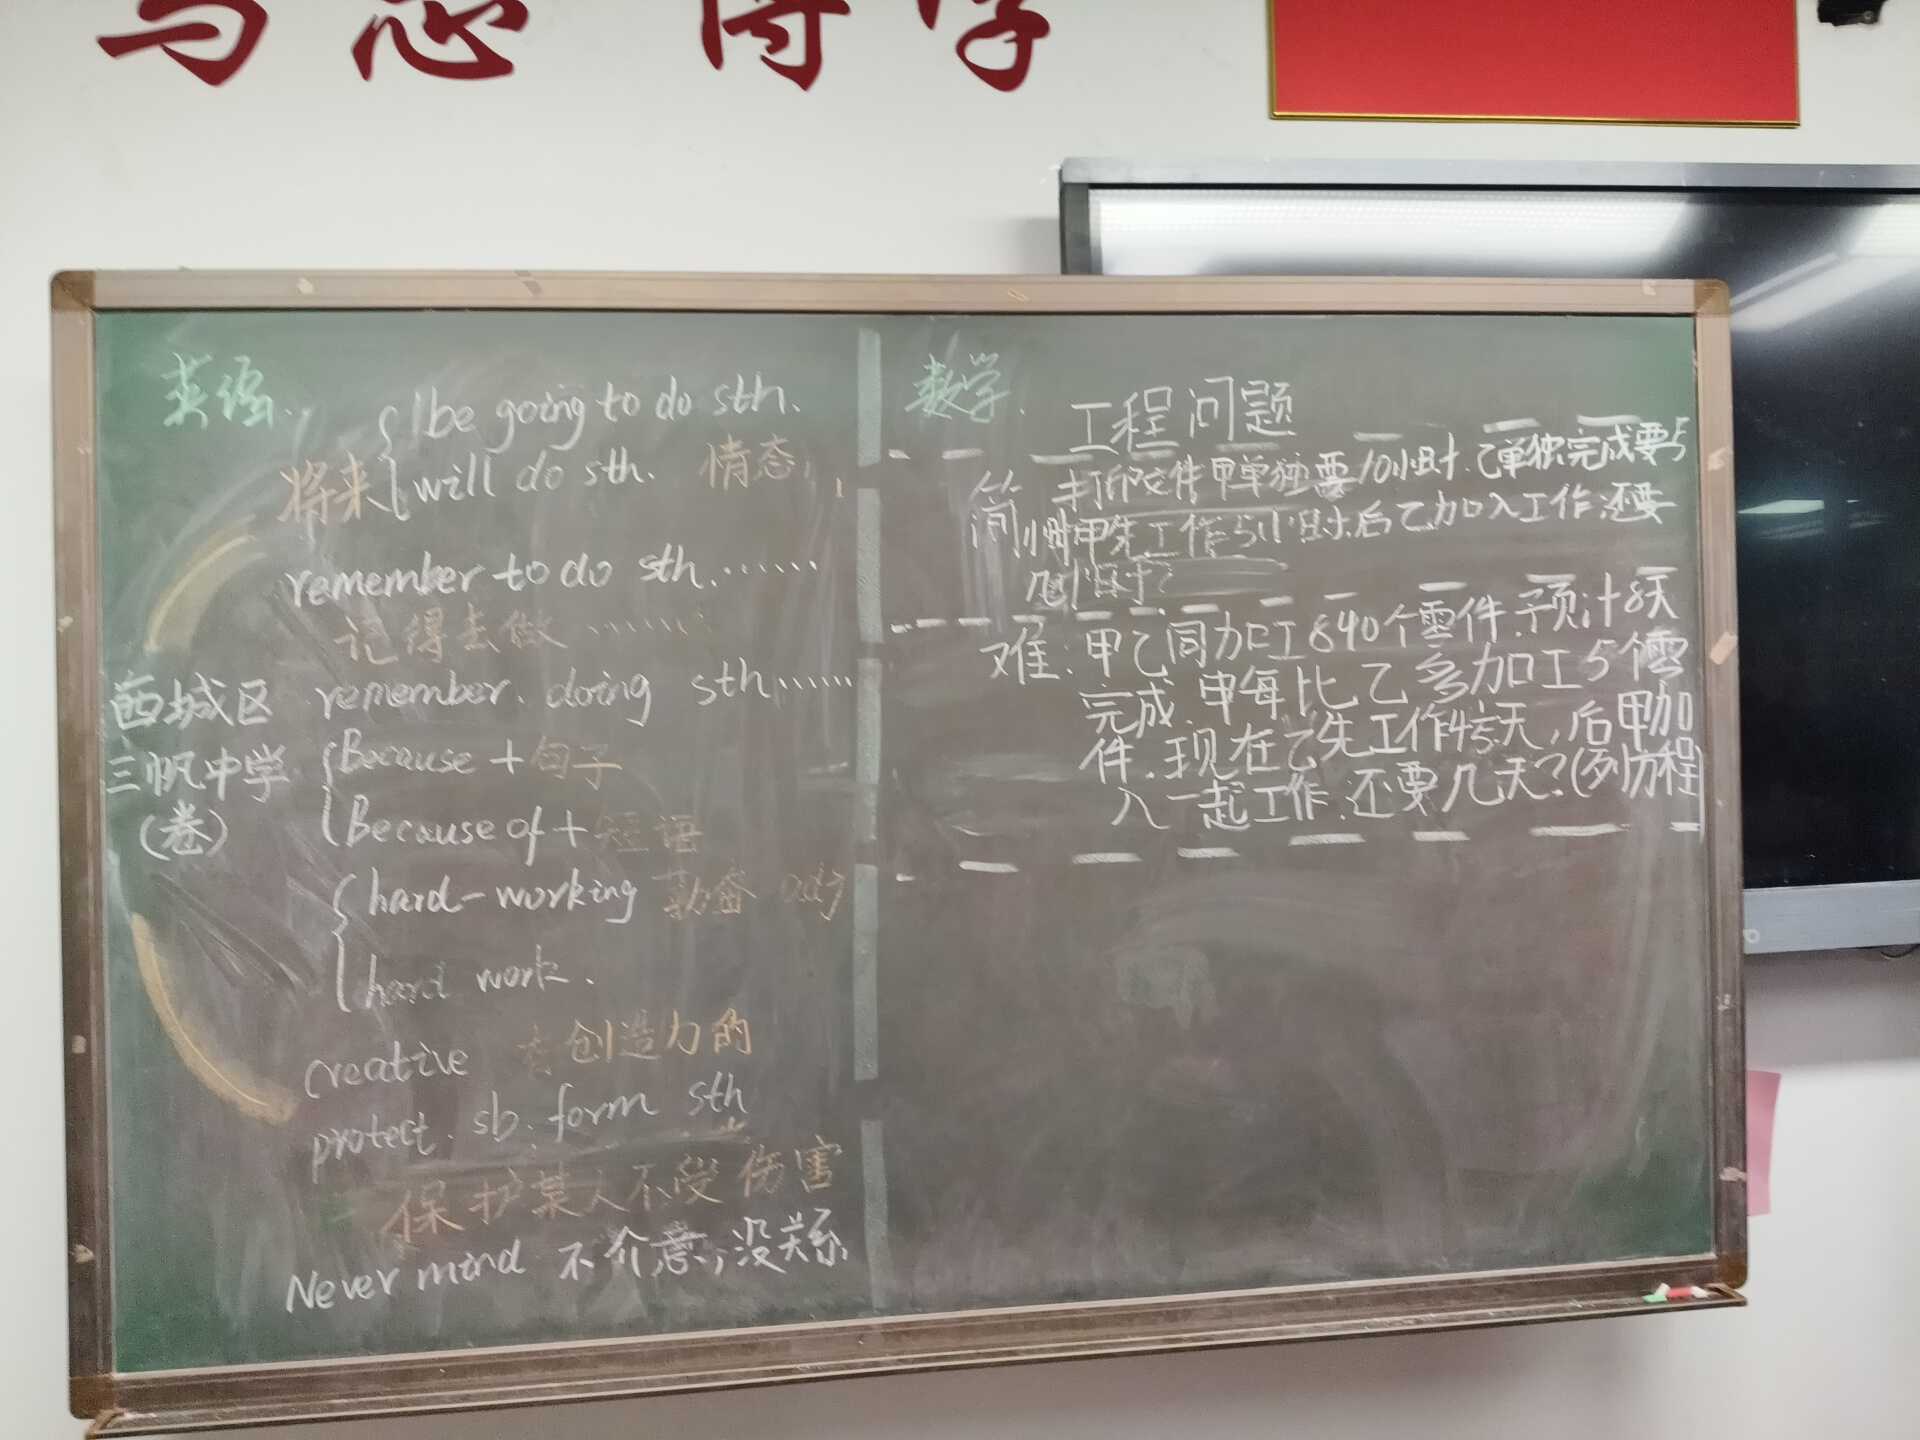 英语.
1be going to do sth.
将来 will do sth. 情态
remember to do sth.……
记得去做 ……
西城区 remember. doing sth……
三帆中学 Because + 句子
(卷) Because of + 短语
hard-working 勤奋 adj
hard work.
creative 有创造力的
protect. sb. form sth
保护某人不受伤害
Never mind 不介意,没关系
数学.
工程问题
简 打印文件甲单独要10小时.乙单独完成要5
小时甲先工作5小时后乙加入工作还要
几小时?
难:甲乙同加工840个零件.预计8天
完成.甲每比乙多加工5个零
件.现在乙先工作 天,后甲加
入一起工作.还要几天?(列方程